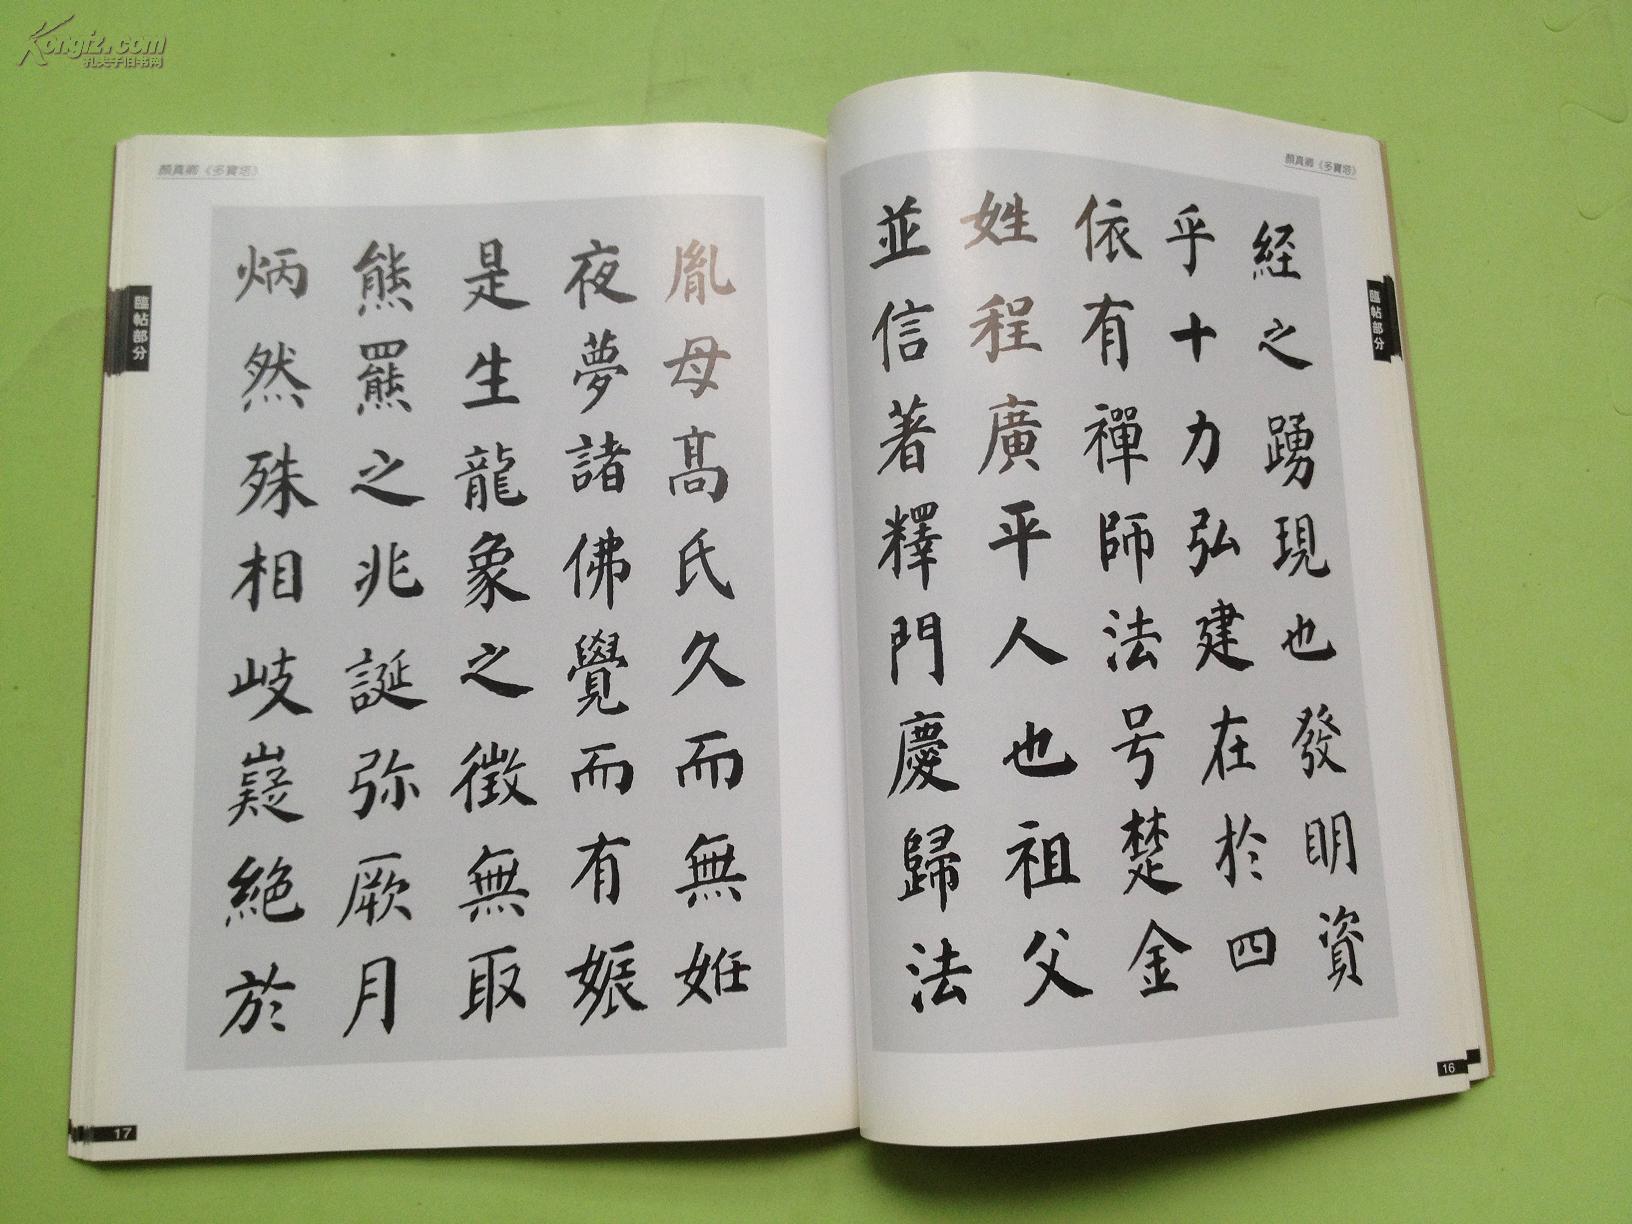 Kongfz.com
孔夫子旧书网
顏真卿《多寶塔》
臨帖部分
経之踴現也發明資
乎十力弘建在於四
依有禪師法号楚金
姓程廣平人也祖父
並信著釋門慶歸法
16
顏真卿《多寶塔》
臨帖部分
胤母髙氏久而無姙
夜夢諸佛覺而有娠
是生龍象之徵無取
熊羆之兆誕弥厥月
炳然殊相岐嶷絶於
17